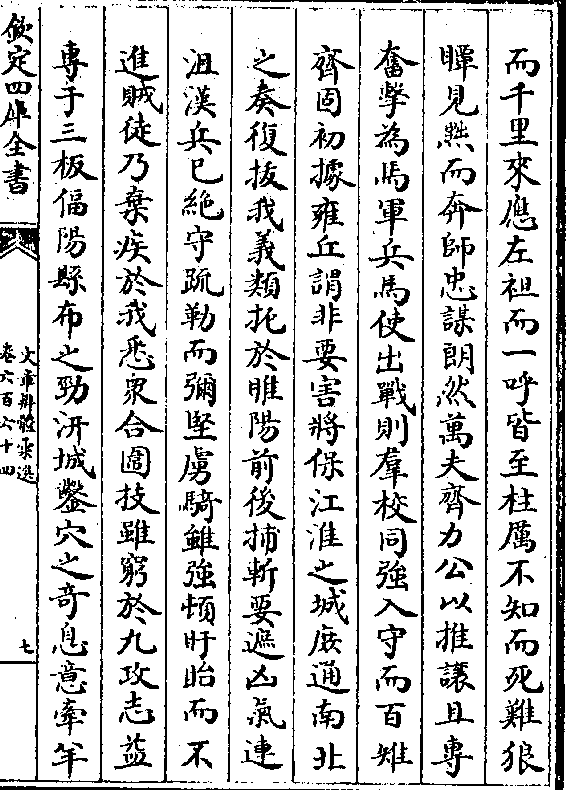 而千里來應左袒而一呼皆至柱厲不知而死難狼
瞫見黜而奔師忠謀朗然萬夫齊力公以推讓且專
奮擊為馬軍兵馬使出戰則羣校同強入守而百雉
齊固初據雍丘謂非要害將保江淮之城庶通南北
之奏復拔我義類扼於睢陽前後捕斬要遮凶氣連
沮漢兵已絶守疏勒而彌堅虜騎雖強頓盱眙而不
進賊徒乃棄疾於我悉衆合圍技雖窮於九攻志益
專于三板偪陽縣布之勁汧城鑿穴之奇息意牽羊
欽定四庫全書
文章辨體彚選
卷六百六十四
七